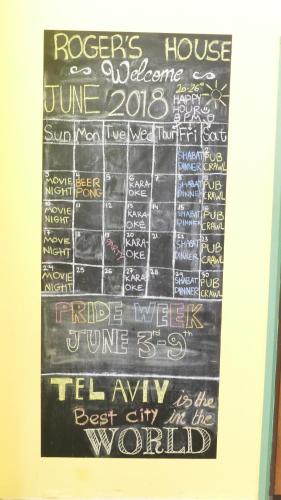 ROGER'S HOUSE
Welcome
JUNE 2018
HAPPY
HOUR
8PM
Sun Mon Tue Wed Thur Fri Sat
SHABAT DINNER PUB CRAWL
3 MOVIE NIGHT 4 BEER PONG 5 6 KARAOKE SHABAT DINNER PUB CRAWL
MOVIE NIGHT 11 12 13 KARAOKE 14 15 SHABAT DINNER 16 PUB CRAWL
17 MOVIE NIGHT 18 19 PARTY 20 KARAOKE 21 22 SHABAT DINNER 23 PUB CRAWL
24 MOVIE NIGHT 25 26 27 KARAOKE 28 29 SHABAT DINNER 30 PUB CRAWL
PRIDE WEEK
JUNE 3rd-9th
TEL AVIV is the
Best city in the
WORLD